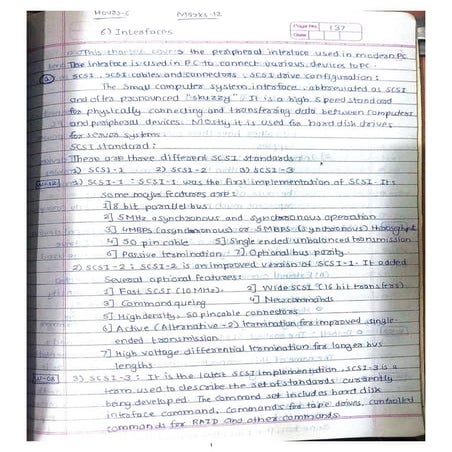 Hours-6 Marks-12
6) Interfaces
Page No. 137
Date
This chapter covers the peripheral interface used in modern PC
The interface is used in PC to connect various devices to PC.
SCSI, SCSI cables and connectors, SCSI drive configuration:
The small computer system interface, abbreviated as SCSI
and often pronounced "skuzzy". It is a high speed standard
for physically connecting and transferring data between computers
and peripheral devices. Mostly it is used for hard disk drives
for server system.
SCSI standard:
There are three different SCSI standards
1) SCSI-1 2) SCSI-2 3) SCSI-3
1) SCSI-1: SCSI-1 was the first implementation of SCSI. It's
some major features are:
1] 8 bit parallel bus
2] 5MHz asynchronous and synchronous operation
3] 4MBPS (asynchronous) or 5MBPS (synchronous) throughput
4] 50 pin cable 5] Single ended unbalanced transmission
6] Passive termination 7] Optional bus parity
2) SCSI-2: SCSI-2 is an improved version of SCSI-1. It added
several optional features:
1] Fast SCSI (10MHz) 2] Wide SCSI (16 bit transfers)
3] Command queing 4] New commands
5] High density, 50 pin cable connectors
6] Active (Alternative-2) termination for improved single-
ended transmission
7] High voltage differential termination for longer bus
lengths.
3) SCSI-3: It is the latest SCSI implementation, SCSI-3 is a
team used to describe the set of standards currently
being developed. The command set includes hard disk
inteface command, commands for tape drives, controlled
commands for RAID and other commands.